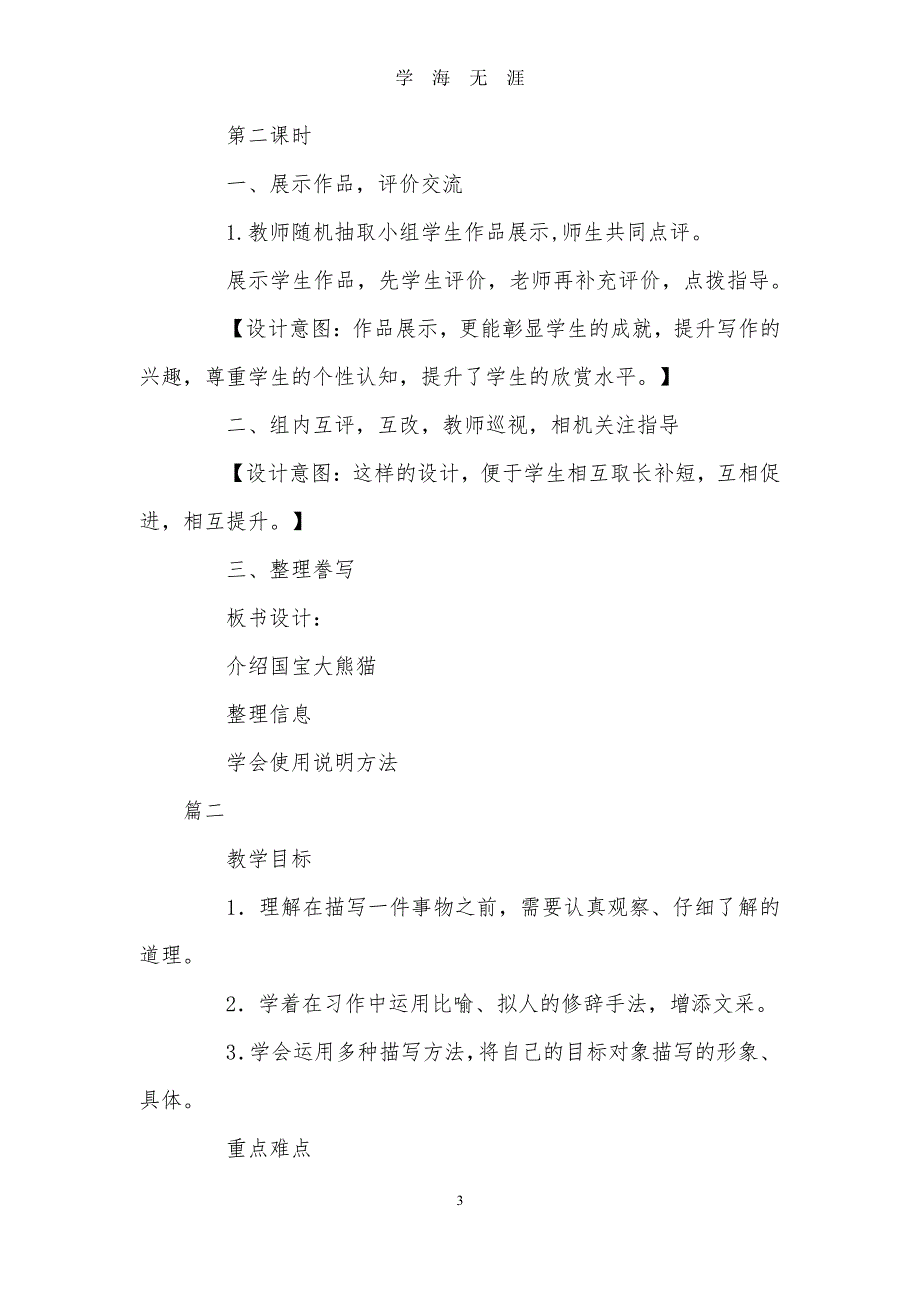 学 海 无 涯
第二课时
一、展示作品，评价交流
1.教师随机抽取小组学生作品展示,师生共同点评。
展示学生作品，先学生评价，老师再补充评价，点拨指导。
【设计意图：作品展示，更能彰显学生的成就，提升写作的
兴趣，尊重学生的个性认知，提升了学生的欣赏水平。】
二、组内互评，互改，教师巡视，相机关注指导
【设计意图：这样的设计，便于学生相互取长补短，互相促
进，相互提升。】
三、整理誊写
板书设计：
介绍国宝大熊猫
整理信息
学会使用说明方法
篇二
教学目标
1．理解在描写一件事物之前，需要认真观察、仔细了解的
道理。
2．学着在习作中运用比喻、拟人的修辞手法，增添文采。
3.学会运用多种描写方法,将自己的目标对象描写的形象、
具体。
重点难点
3